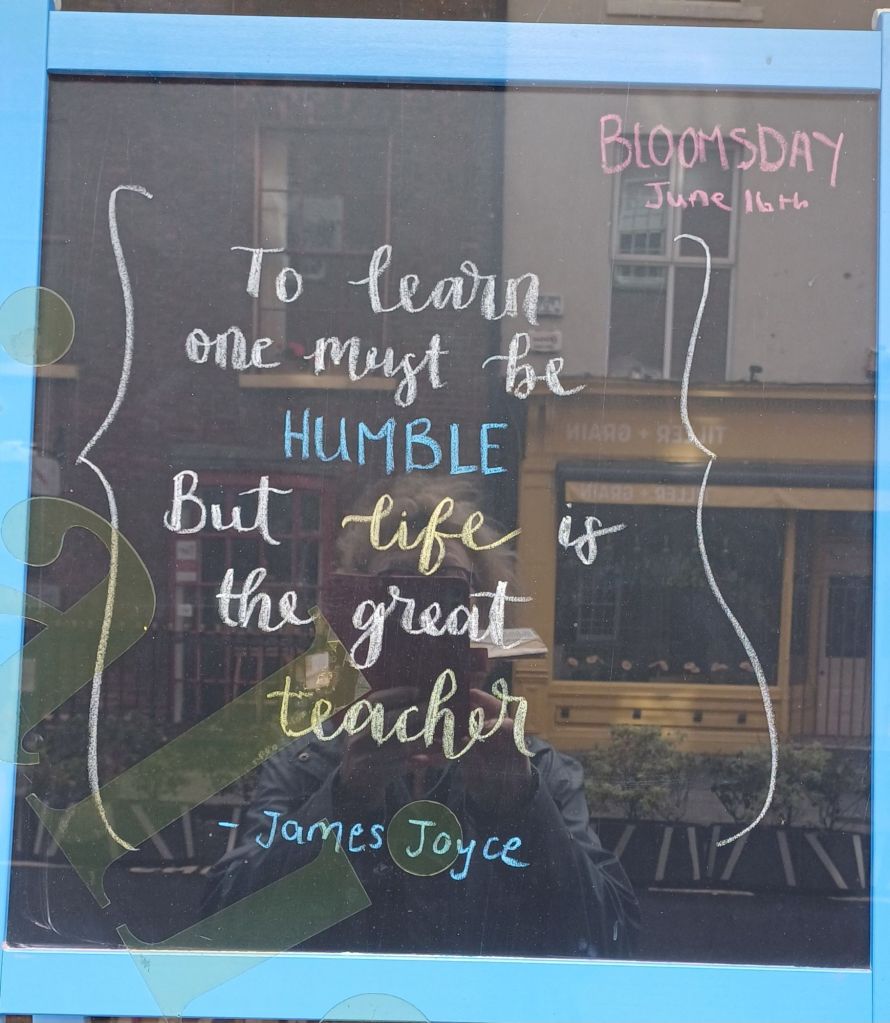 BLOOMSDAY
June 16th
To learn
one must be
HUMBLE
But life is
the great
teacher
- James Joyce
TILLER + GRAIN
TILLER + GRAIN